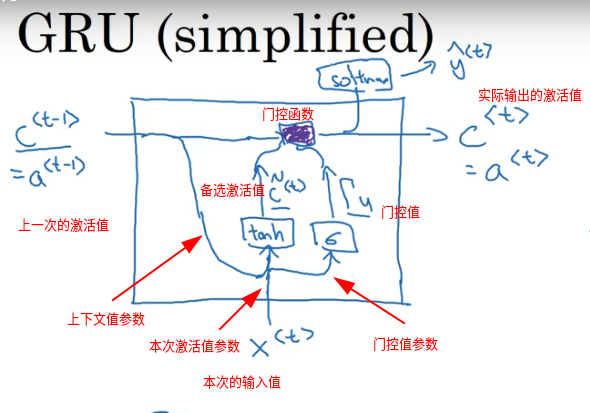 GRU (simplified)
softmax
ŷ<t>
实际输出的激活值
门控函数
c<t-1>
=a<t-1>
c<t>
= a<t>
备选激活值
c̃<t>
Γu
门控值
上一次的激活值
tanh
σ
上下文值参数
本次激活值参数
门控值参数
x<t>
本次的输入值